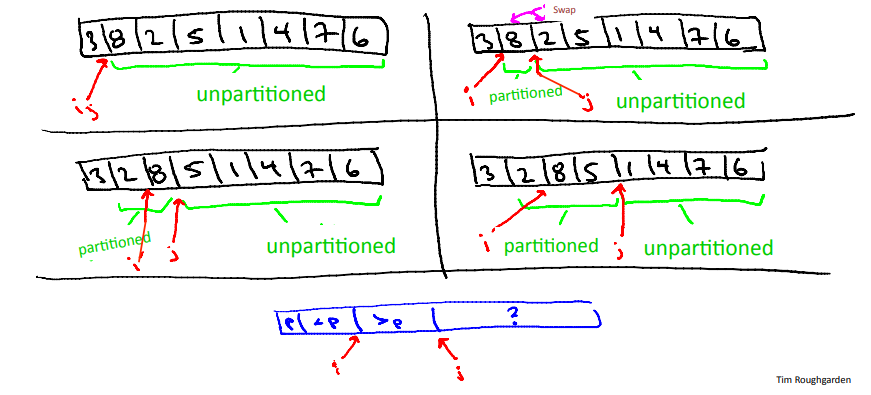 Swap
3 8 2 5 1 4 7 6
i j
unpartitioned
3 8 2 5 1 4 7 6
i
partitioned
j
unpartitioned
3 2 8 5 1 4 7 6
partitioned
i
j
unpartitioned
3 2 8 5 1 4 7 6
i
partitioned
j
unpartitioned
P <P >P ?
i
j
Tim Roughgarden